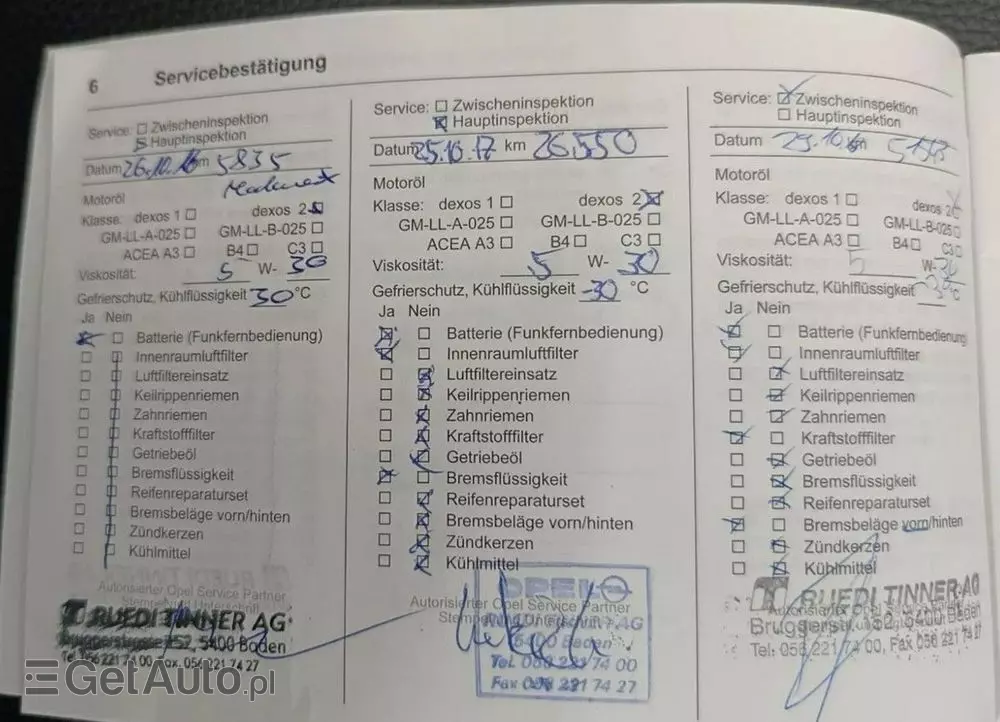 6 Servicebestätigung
Service: Zwischeninspektion
Hauptinspektion
Datum 26.10.16 km 5835
Motoröl
Klasse: dexos 1 dexos 2
GM-LL-A-025 GM-LL-B-025
ACEA A3 B4 C3
Viskosität: 5 W- 30
Gefrierschutz, Kühlflüssigkeit 30 °C
Ja Nein
Batterie (Funkfernbedienung)
Innenraumluftfilter
Luftfiltereinsatz
Keilrippenriemen
Zahnriemen
Kraftstofffilter
Getriebeöl
Bremsflüssigkeit
Reifenreparaturset
Bremsbeläge vorn/hinten
Zündkerzen
Kühlmittel
Autorisierter Opel Service Partner
Stempel und Unterschrift
RUEDI TINNER AG
Bruggerstrasse 152, 5400 Baden
Tel. 056 221 74 00 Fax. 056 221 74 27
Service: Zwischeninspektion
Hauptinspektion
Datum 25.10.17 km 26550
Motoröl
Klasse: dexos 1 dexos 2
GM-LL-A-025 GM-LL-B-025
ACEA A3 B4 C3
Viskosität: 5 W- 30
Gefrierschutz, Kühlflüssigkeit -30 °C
Ja Nein
Batterie (Funkfernbedienung)
Innenraumluftfilter
Luftfiltereinsatz
Keilrippenriemen
Zahnriemen
Kraftstofffilter
Getriebeöl
Bremsflüssigkeit
Reifenreparaturset
Bremsbeläge vorn/hinten
Zündkerzen
Kühlmittel
OPEL
Autorisierter Opel Service Partner
Stempel und Unterschrift
AG
5400 Baden
Tel. 056 221 74 00
Fax 056 221 74 27
Service: Zwischeninspektion
Hauptinspektion
Datum 29.10 km
Motoröl
Klasse: dexos 1 dexos 2
GM-LL-A-025 GM-LL-B-025
ACEA A3 B4 C3
Viskosität: 5 W- 30
Gefrierschutz, Kühlflüssigkeit °C
Ja Nein
Batterie (Funkfernbedienung)
Innenraumluftfilter
Luftfiltereinsatz
Keilrippenriemen
Zahnriemen
Kraftstofffilter
Getriebeöl
Bremsflüssigkeit
Reifenreparaturset
Bremsbeläge vorn/hinten
Zündkerzen
Kühlmittel
Autorisierter Opel
RUEDI TINNER AG
Bruggerstr. 152, 5400 Baden
Tel: 056 221 74 00, Fax 056 221 74 27
GetAuto.pl